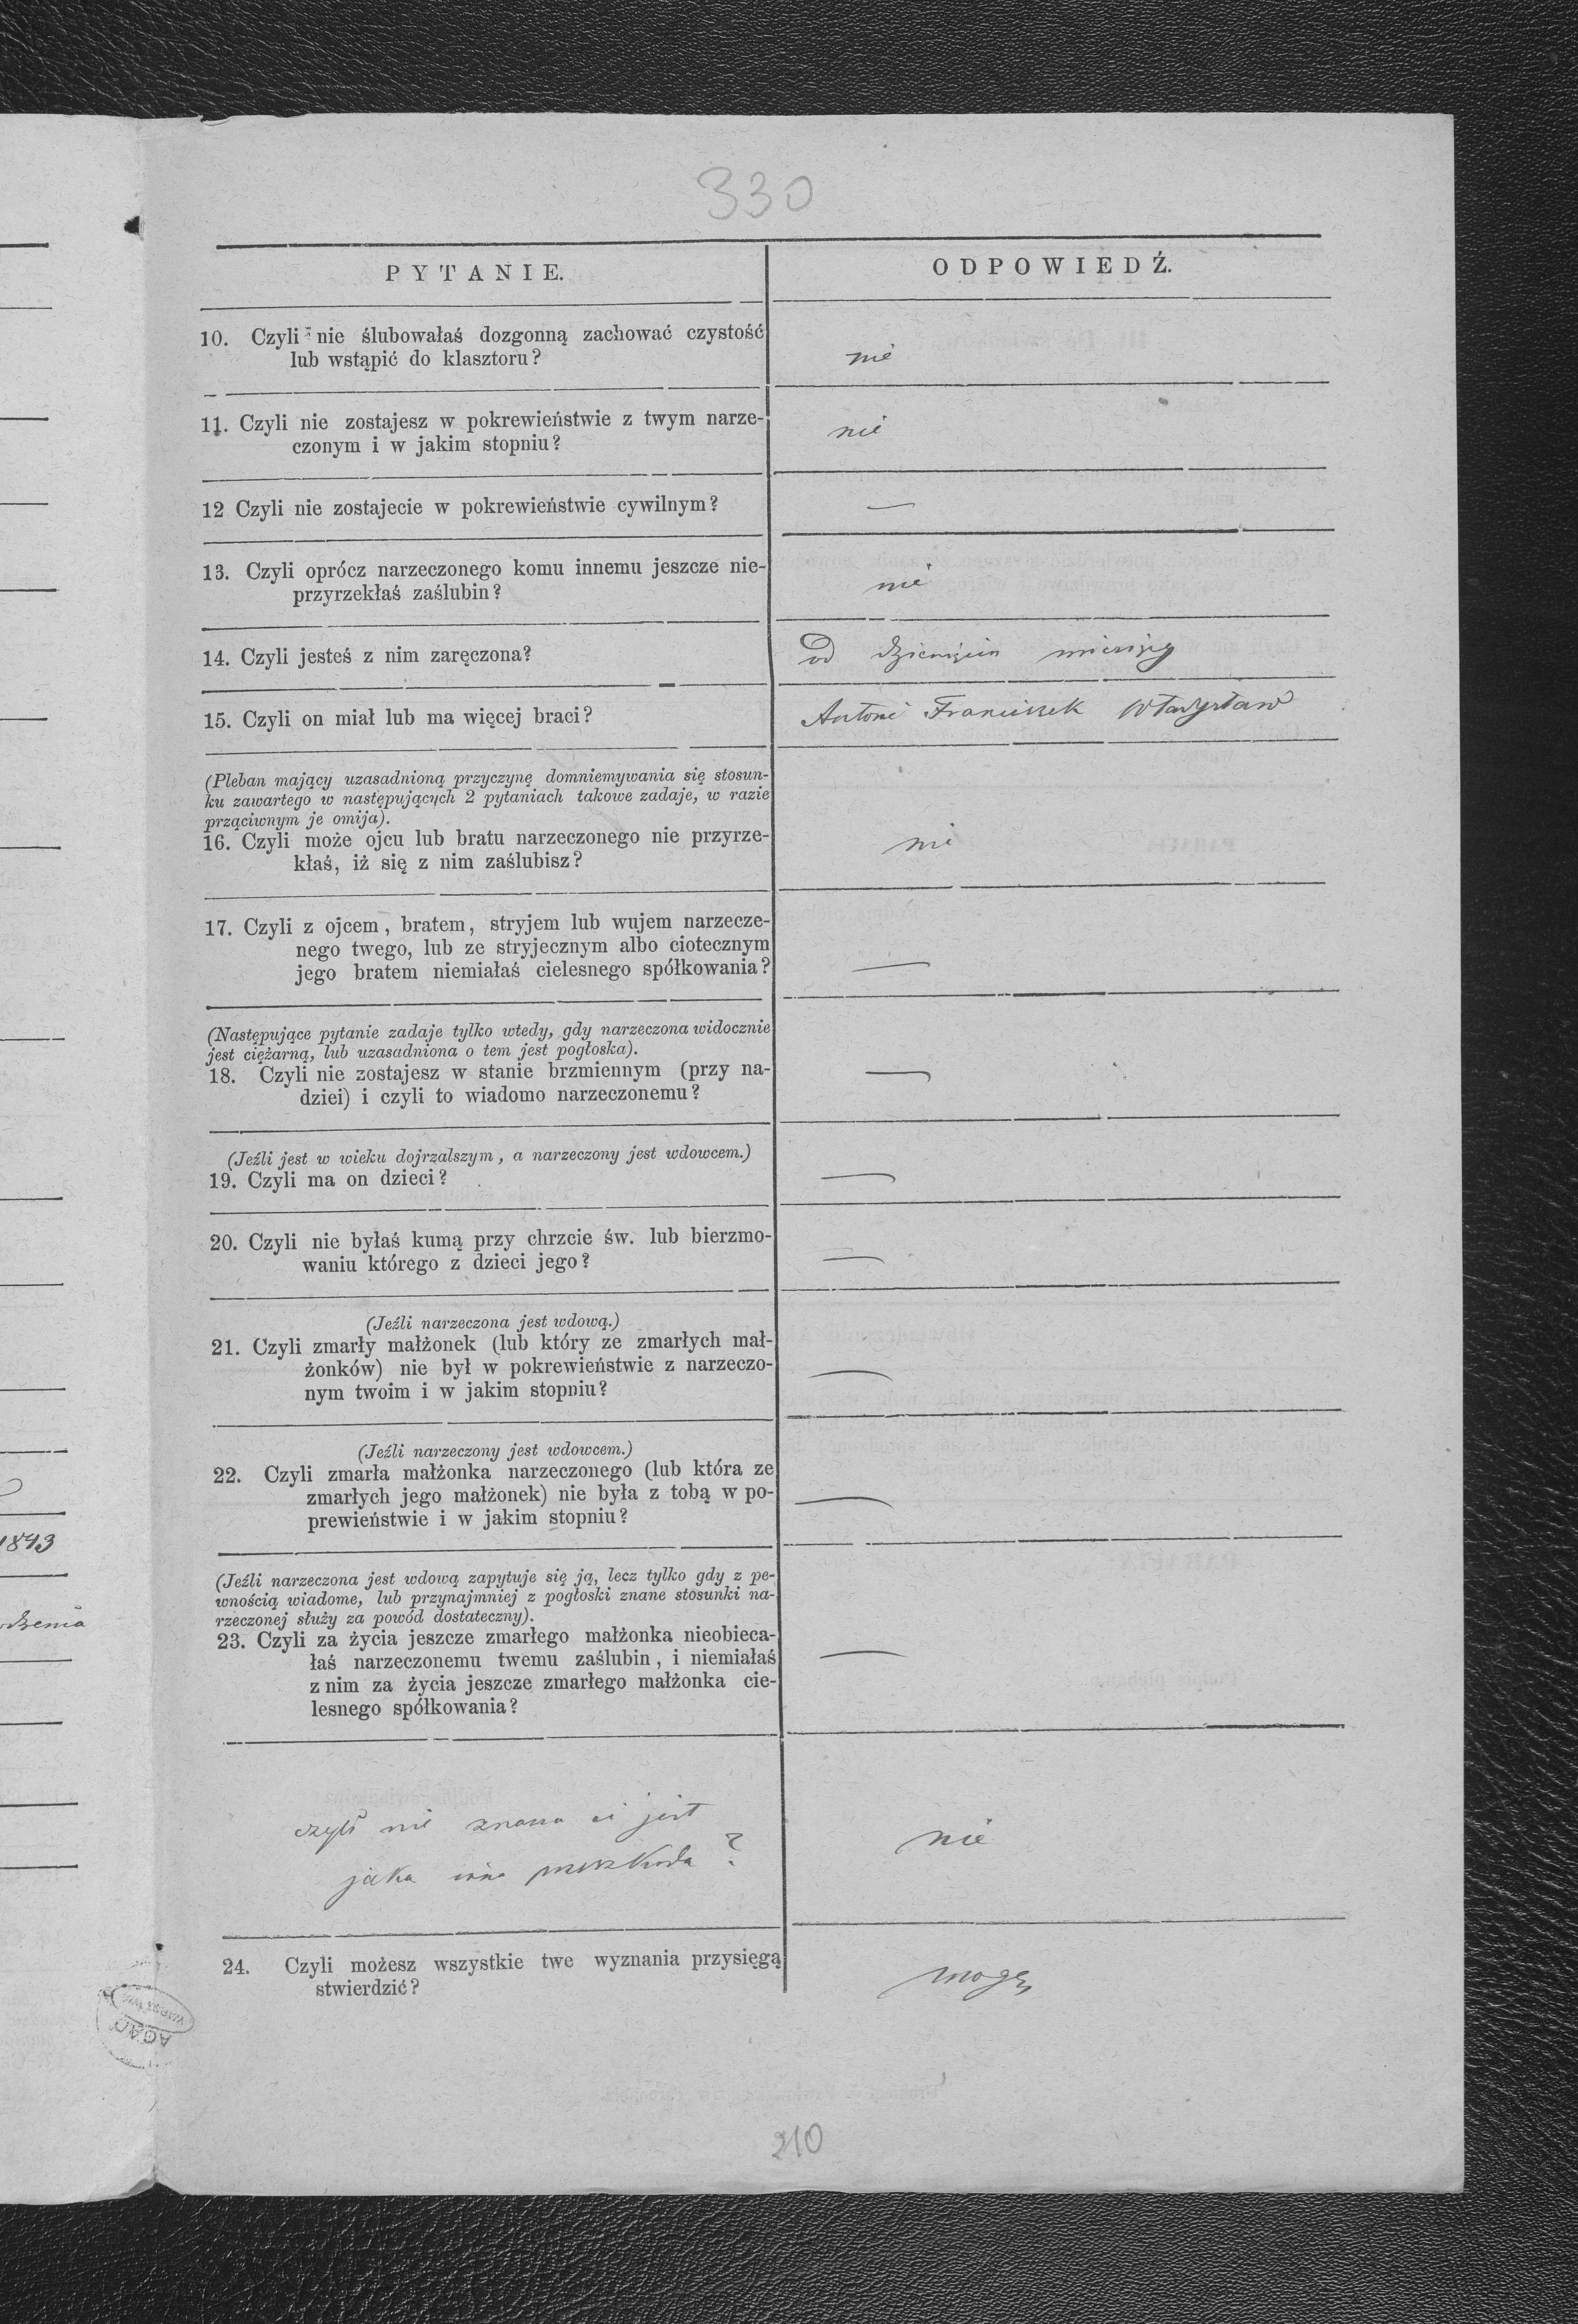 330
PYTANIE.
ODPOWIEDŹ.
10. Czyli nie ślubowałaś dozgonną zachować czystość
lub wstąpić do klasztoru?
nie
11. Czyli nie zostajesz w pokrewieństwie z twym narze-
czonym i w jakim stopniu?
nie
12 Czyli nie zostajecie w pokrewieństwie cywilnym?
—
13. Czyli oprócz narzeczonego komu innemu jeszcze nie-
przyrzekłaś zaślubin?
nie
14. Czyli jesteś z nim zaręczona?
Od dziesięciu miesięcy
15. Czyli on miał lub ma więcej braci?
Antoni Franciszek Władysław
(Pleban mający uzasadnioną przyczynę domniemywania się stosun-
ku zawartego w następujących 2 pytaniach takowe zadaje, w razie
prząciwnym je omija).
16. Czyli może ojcu lub bratu narzeczonego nie przyrze-
kłaś, iż się z nim zaślubisz?
nie
17. Czyli z ojcem, bratem, stryjem lub wujem narzecze-
nego twego, lub ze stryjecznym albo ciotecznym
jego bratem niemiałaś cielesnego spółkowania?
—
(Następujące pytanie zadaje tylko wtedy, gdy narzeczona widocznie
jest ciężarną, lub uzasadniona o tem jest pogłoska).
18. Czyli nie zostajesz w stanie brzmiennym (przy na-
dziei) i czyli to wiadomo narzeczonemu?
—
(Jeźli jest w wieku dojrzalszym, a narzeczony jest wdowcem.)
19. Czyli ma on dzieci?
—
20. Czyli nie byłaś kumą przy chrzcie św. lub bierzmo-
waniu którego z dzieci jego?
—
(Jeźli narzeczona jest wdową.)
21. Czyli zmarły małżonek (lub który ze zmarłych mał-
żonków) nie był w pokrewieństwie z narzeczo-
nym twoim i w jakim stopniu?
—
(Jeźli narzeczony jest wdowcem.)
22. Czyli zmarła małżonka narzeczonego (lub która ze
zmarłych jego małżonek) nie była z tobą w po-
prewieństwie i w jakim stopniu?
—
1843
(Jeźli narzeczona jest wdową zapytuje się ją, lecz tylko gdy z pe-
wnością wiadome, lub przynajmniej z pogłoski znane stosunki na-
rzeczonej służy za powód dostateczny).
23. Czyli za życia jeszcze zmarłego małżonka nieobieca-
łaś narzeczonemu twemu zaślubin, i niemiałaś
z nim za życia jeszcze zmarłego małżonka cie-
lesnego spółkowania?
—
czyli nie znana ci jest
jaka inna przeszkoda?
nie
24. Czyli możesz wszystkie twe wyznania przysięgą
stwierdzić?
mogę
AGAD
210